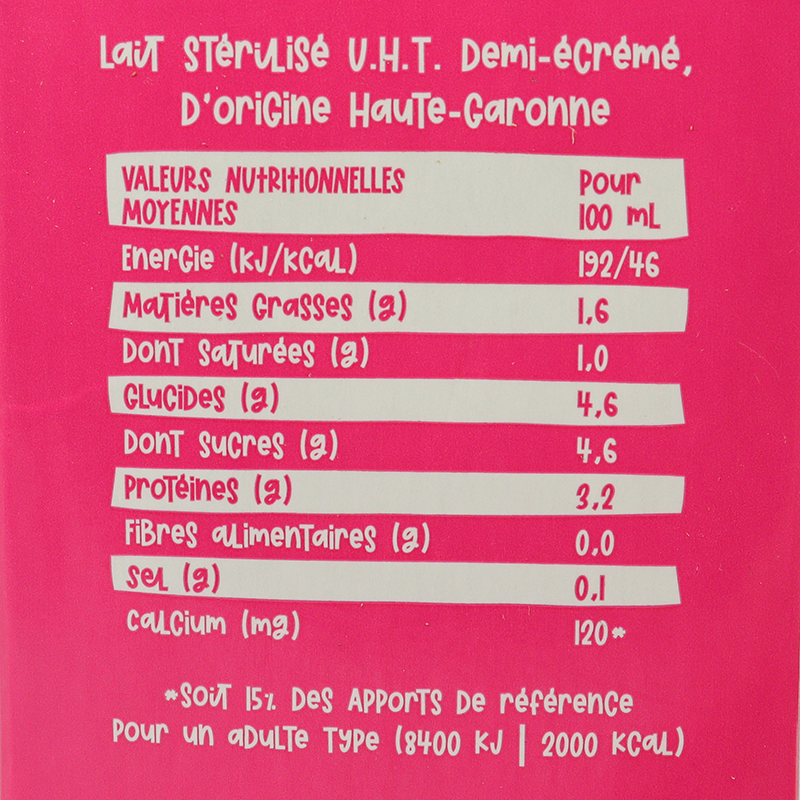 Lait stérilisé U.H.T. Demi-écrémé,
D'origine Haute-Garonne
VALEURS NUTRITIONNELLES MOYENNES Pour 100 mL
Energie (kJ/kcal) 192/46
Matières grasses (g) 1,6
Dont saturées (g) 1,0
Glucides (g) 4,6
Dont sucres (g) 4,6
Protéines (g) 3,2
Fibres alimentaires (g) 0,0
Sel (g) 0,1
Calcium (mg) 120*
*Soit 15% des apports de référence
pour un adulte type (8400 kJ | 2000 kcal)